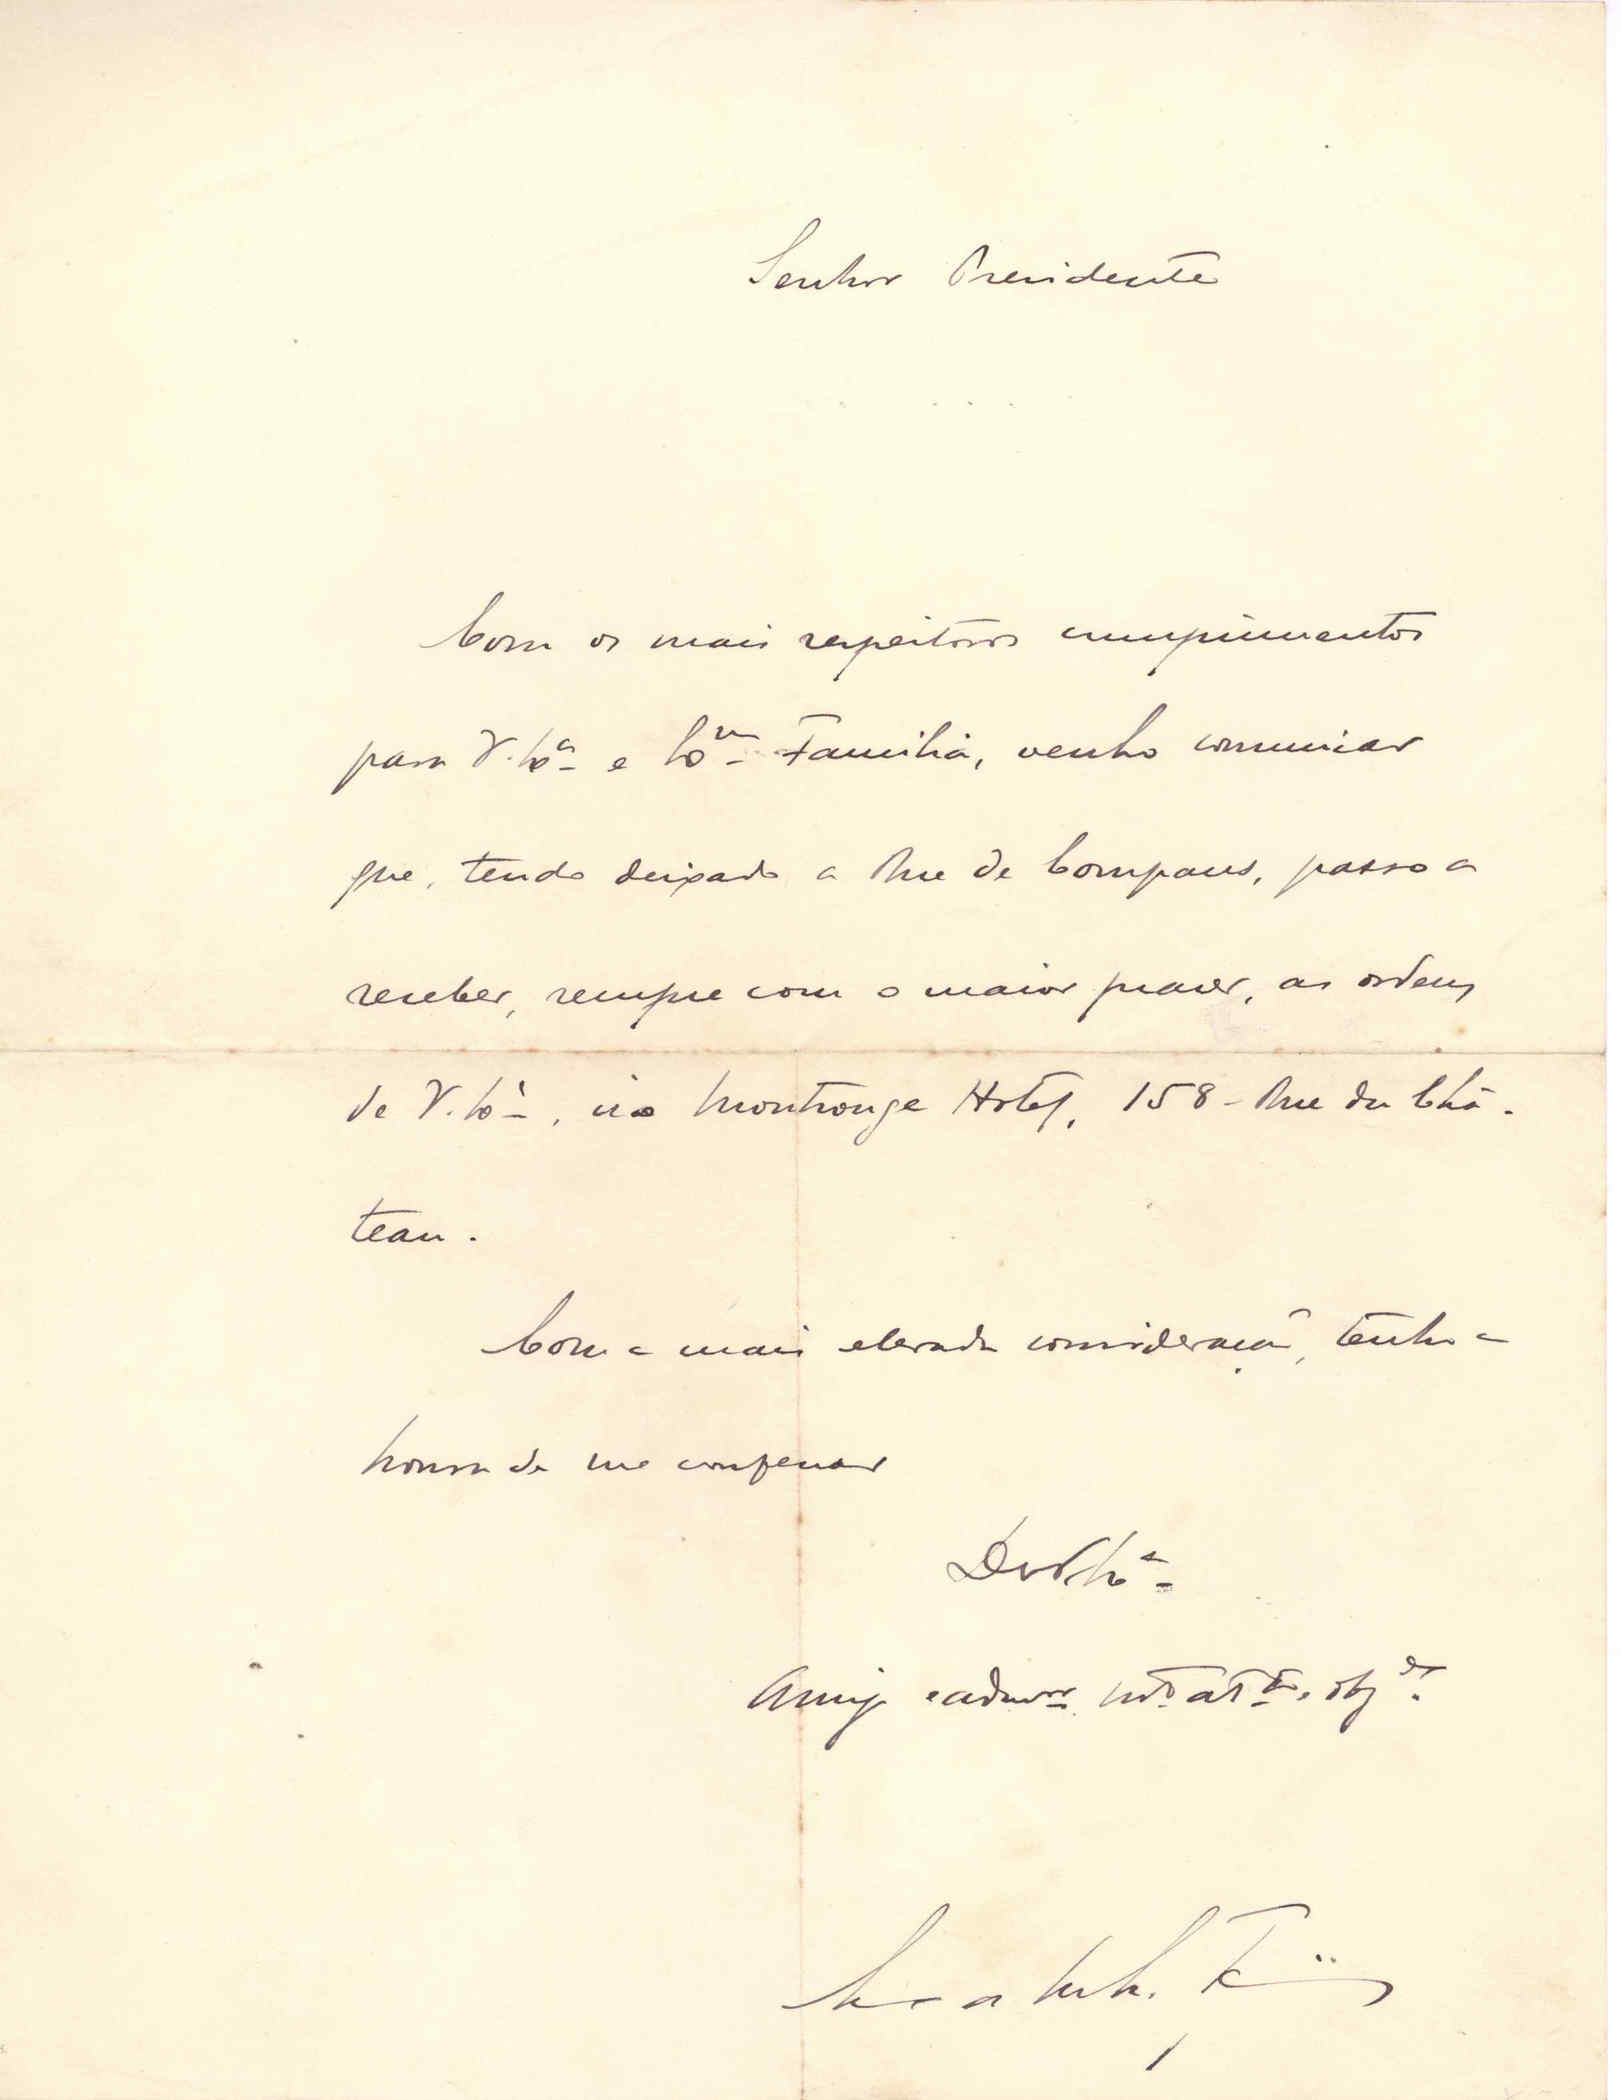 Senhor Presidente
Com os mais respeitosos cumprimentos
para V. Exª e Exmª Familia, venho comunicar
que, tendo deixado a Rue de Compans, passo a
receber, sempre com o maior prazer, as ordens
de V. Exª, no Montrouge Hotel, 158 - Rue du Châ-
teau.
Com a mais elevada consideração, tenho a
honra de me confessar
De V. Exª
Amigo e admor mto attº e obgdo